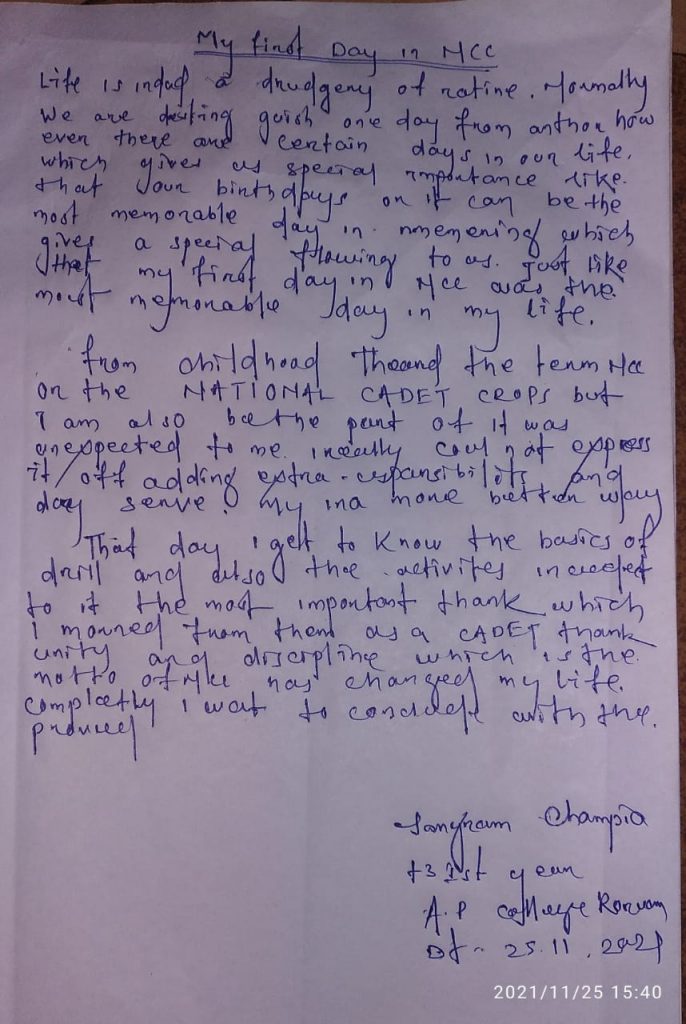 My first Day in NCC
Life is indud a drudgery of ratine. Normally
We are desting guish one day from anthor how
even there are certain days in our life.
which gives us special importance like.
that your birthdays or it can be the
most memorable day in nmemening which
gives a special flowing to us. Just like
that my first day in NCC was the.
most memorable day in my life.
from childhood Theand the term NCC
or the NATIONAL CADET CROPS but
I am also be the part of it was
unexpected to me. could not express
it off adding extra-responsibilits and
day serve. my ina more better way
That day I get to Know the basics of
drill and also the activites
to it the most important thank which
I from them as a CADET thank
unity and discipline which is the.
motto of NCC has changed my life.
completly I wat to conclude with the.
proued
Sangram Champia
+3 1st year
A.P college
Dt - 25.11.2021
2021/11/25 15:40